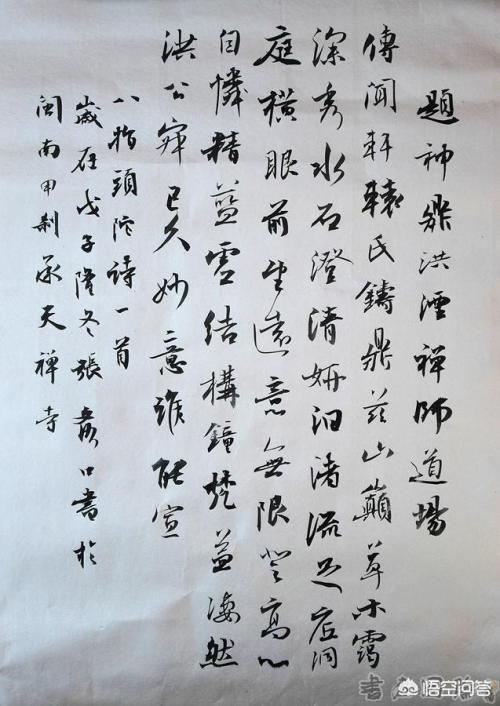 題神鼎洪湮禪師道場
傳聞軒轅氏鑄鼎茲山巔草木靄
深秀水石澄清妍汩渚流足底洞
庭橫眼前生遠意無限登高心
自憐精藍雲結構鐘梵益淒然
洪公寂已久妙意誰能宣
八指頭陀詩一首
歲在戊子隆冬張口書於
閩南甲刹承天禪寺
悟空问答